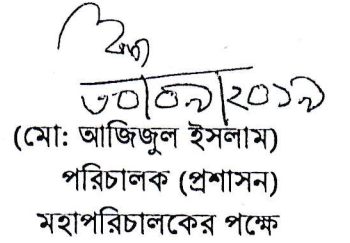 ৩০/০৯/২০১৯
(মো: আজিজুল ইসলাম)
পরিচালক (প্রশাসন)
মহাপরিচালকের পক্ষে